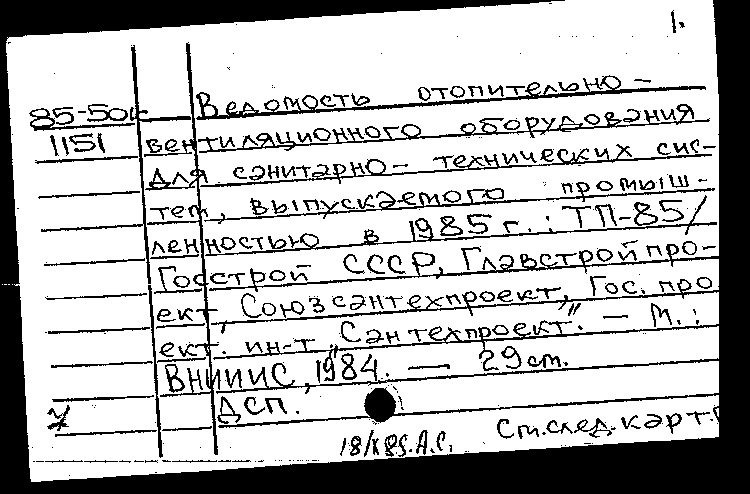 1.
85-50к Ведомость отопительно-
1151 вентиляционного оборудования
для санитарно-технических сис-
тем, выпускаемого промыш-
ленностью в 1985 г.: ТП-85/
Госстрой СССР, Главстройпро-
ект, Союзсантехпроект, Гос. про
ект. ин-т „Сантехпроект". — М.:
ВНИИИС, 1984. — 29 ст.
ДСП.
18/X 85. А.С. См. след. карт.